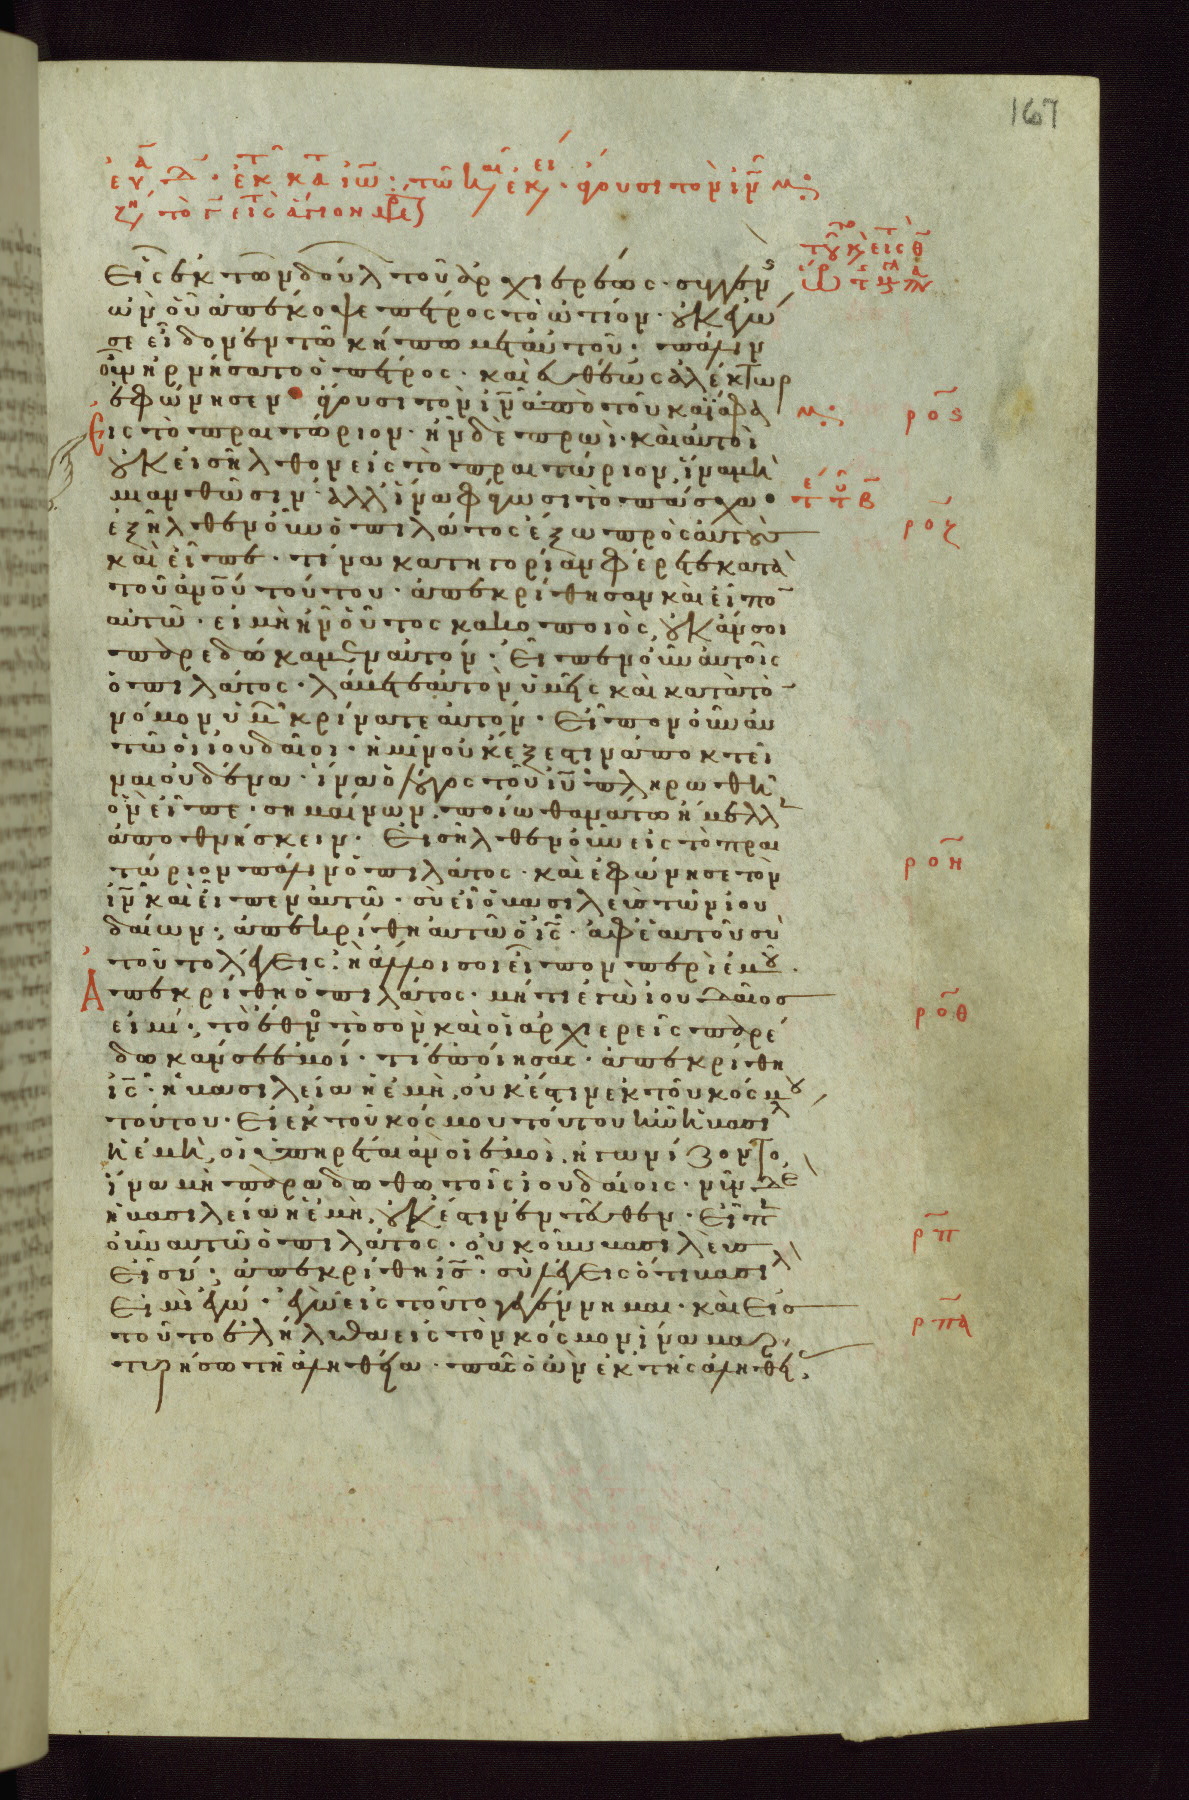 167
Εἷς ἐκ τῶν δούλ τοῦ ἀρχιερέως· συγγενς
ὢν οὗ ἀπέκοψε πέτρος τὸ ὠτίον· οὐκ ἐγώ
σε εἶδον ἐν τῷ κήπῳ μετ αὐτοῦ· πάλιν
οὖν ἠρνήσατο ὁ πέτρος· καὶ εὐθέως ἀλέκτωρ
ἐφώνησεν· ἄγουσι τὸν ιν̅ ἀπὸ τοῦ καϊάφα ρο̅ς
εἰς τὸ πραιτώριον· ἦν δὲ πρωὶ· καὶ αὐτοὶ
οὐκ εἰσῆλθον εἰς τὸ πραιτώριον, ἵνα μὴ
μιανθῶσιν· ἀλλ ἵνα φάγωσι τὸ πάσχα·
ἐξῆλθεν οὖν ὁ πιλάτος ἔξω πρὸς αὐτοὺς ρο̅ζ
καὶ εἶπε· τίνα κατηγορίαν φέρετε κατὰ
τοῦ ἀνο̅υ τούτου· ἀπεκρίθησαν καὶ εἶπο̅
αὐτῷ· εἰ μὴ ἦν οὗτος κακοποιὸς, οὐκ ἄν σοι
παρεδώκαμεν αὐτόν· Εἶπεν οὖν αὐτοῖς
ὁ πιλάτος· λάβετε αὐτὸν ὑμεῖς καὶ κατὰ τὸ̅
νόμον ὑμ κρίνατε αὐτόν· Εἶπον οὖν αὐ
τῷ οἱ ἰουδαῖοι· ἡμῖν οὐκ ἔξεστιν ἀποκτεῖ
ναι οὐδένα· ἵνα ὁ λόγος τοῦ ιυ̅ πληρωθῆ
ὃν εἶπε· σημαίνων, ποίω θανάτω ἤμελλ
ἀποθνήσκειν· Εἰσῆλθεν οὖν εἰς τὸ πραι
τώριον πάλιν ὁ πιλάτος· καὶ ἐφώνησε τὸν ρο̅η
ιν̅ καὶ εἶπεν αὐτῷ· σὺ εἶ ὁ βασιλεὺς τῶν ἰου
δαίων; ἀπεκρίθη αὐτῷ ὁ ις̅· ἀφ ἑαυτοῦ σὺ
τοῦτο λέγεις; ἢ ἄλλοι σοι εἶπον περὶ ἐμοῦ·
Ἀπεκρίθη ὁ πιλάτος· μήτι ἐγὼ ἰουδαῖος ρο̅θ
εἰμί; τὸ ἔθν τὸ σὸν καὶ οἱ ἀρχιερεῖς παρέ
δωκάν σε ἐμοί· τί ἐποίησας· ἀπεκρίθη
ις̅· ἡ βασιλεία ἡ ἐμὴ, οὐκ ἔστιν ἐκ τοῦ κόσμου
τούτου· Εἰ ἐκ τοῦ κόσμου τούτου ἦν ἡ βασιλ
ἡ ἐμὴ, οἱ ὑπηρέται ἂν οἱ ἐμοὶ ἠγωνίζοντο,
ἵνα μὴ παραδωθῶ τοῖς ἰουδαίοις· νῦν δὲ
ἡ βασιλεία ἡ ἐμὴ, οὐκ ἔστιν ἐντεῦθεν· Εἶπ
οὖν αὐτῷ ὁ πιλάτος· οὐκοῦν βασιλεὺς ρ̅π
εἶ σύ; ἀπεκρίθη ις̅· σὺ λέγεις ὅτι βασιλ
εἰμὶ ἐγώ· ἐγὼ εἰς τοῦτο γεγέννημαι· καὶ εἰς
τοῦτο ἐλήλυθα εἰς τὸν κόσμον ἵνα μαρ ρ̅πα
τυρήσω τῆ ἀληθεία· πᾶς ὁ ὢν ἐκ τῆς ἀληθεί